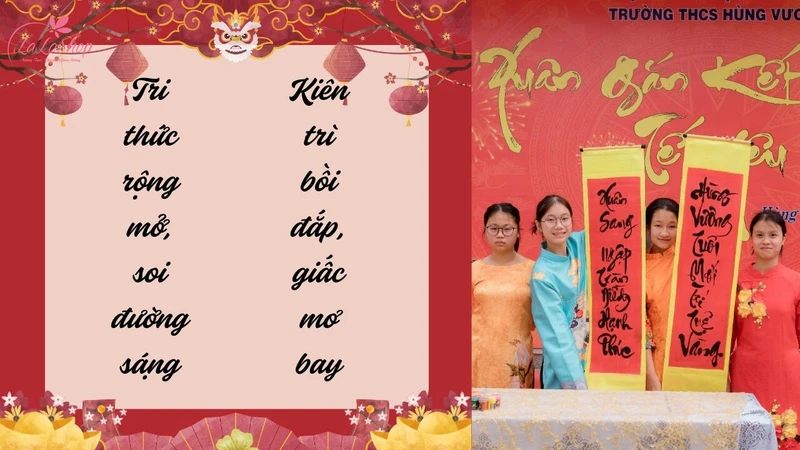 LaLaShop
Tri
thức
rộng
mở,
soi
đường
sáng
Kiên
trì
bồi
đắp,
giấc
mơ
bay
TRƯỜNG THCS HÙNG VƯƠ
Xuân Gắn Kết
Tết
Xuân
Sang
Ngập
Tràn
Những
Hạnh
Phúc
Hùng
Vương
Tuổi
Mới
Trí
Tuệ
Vàng